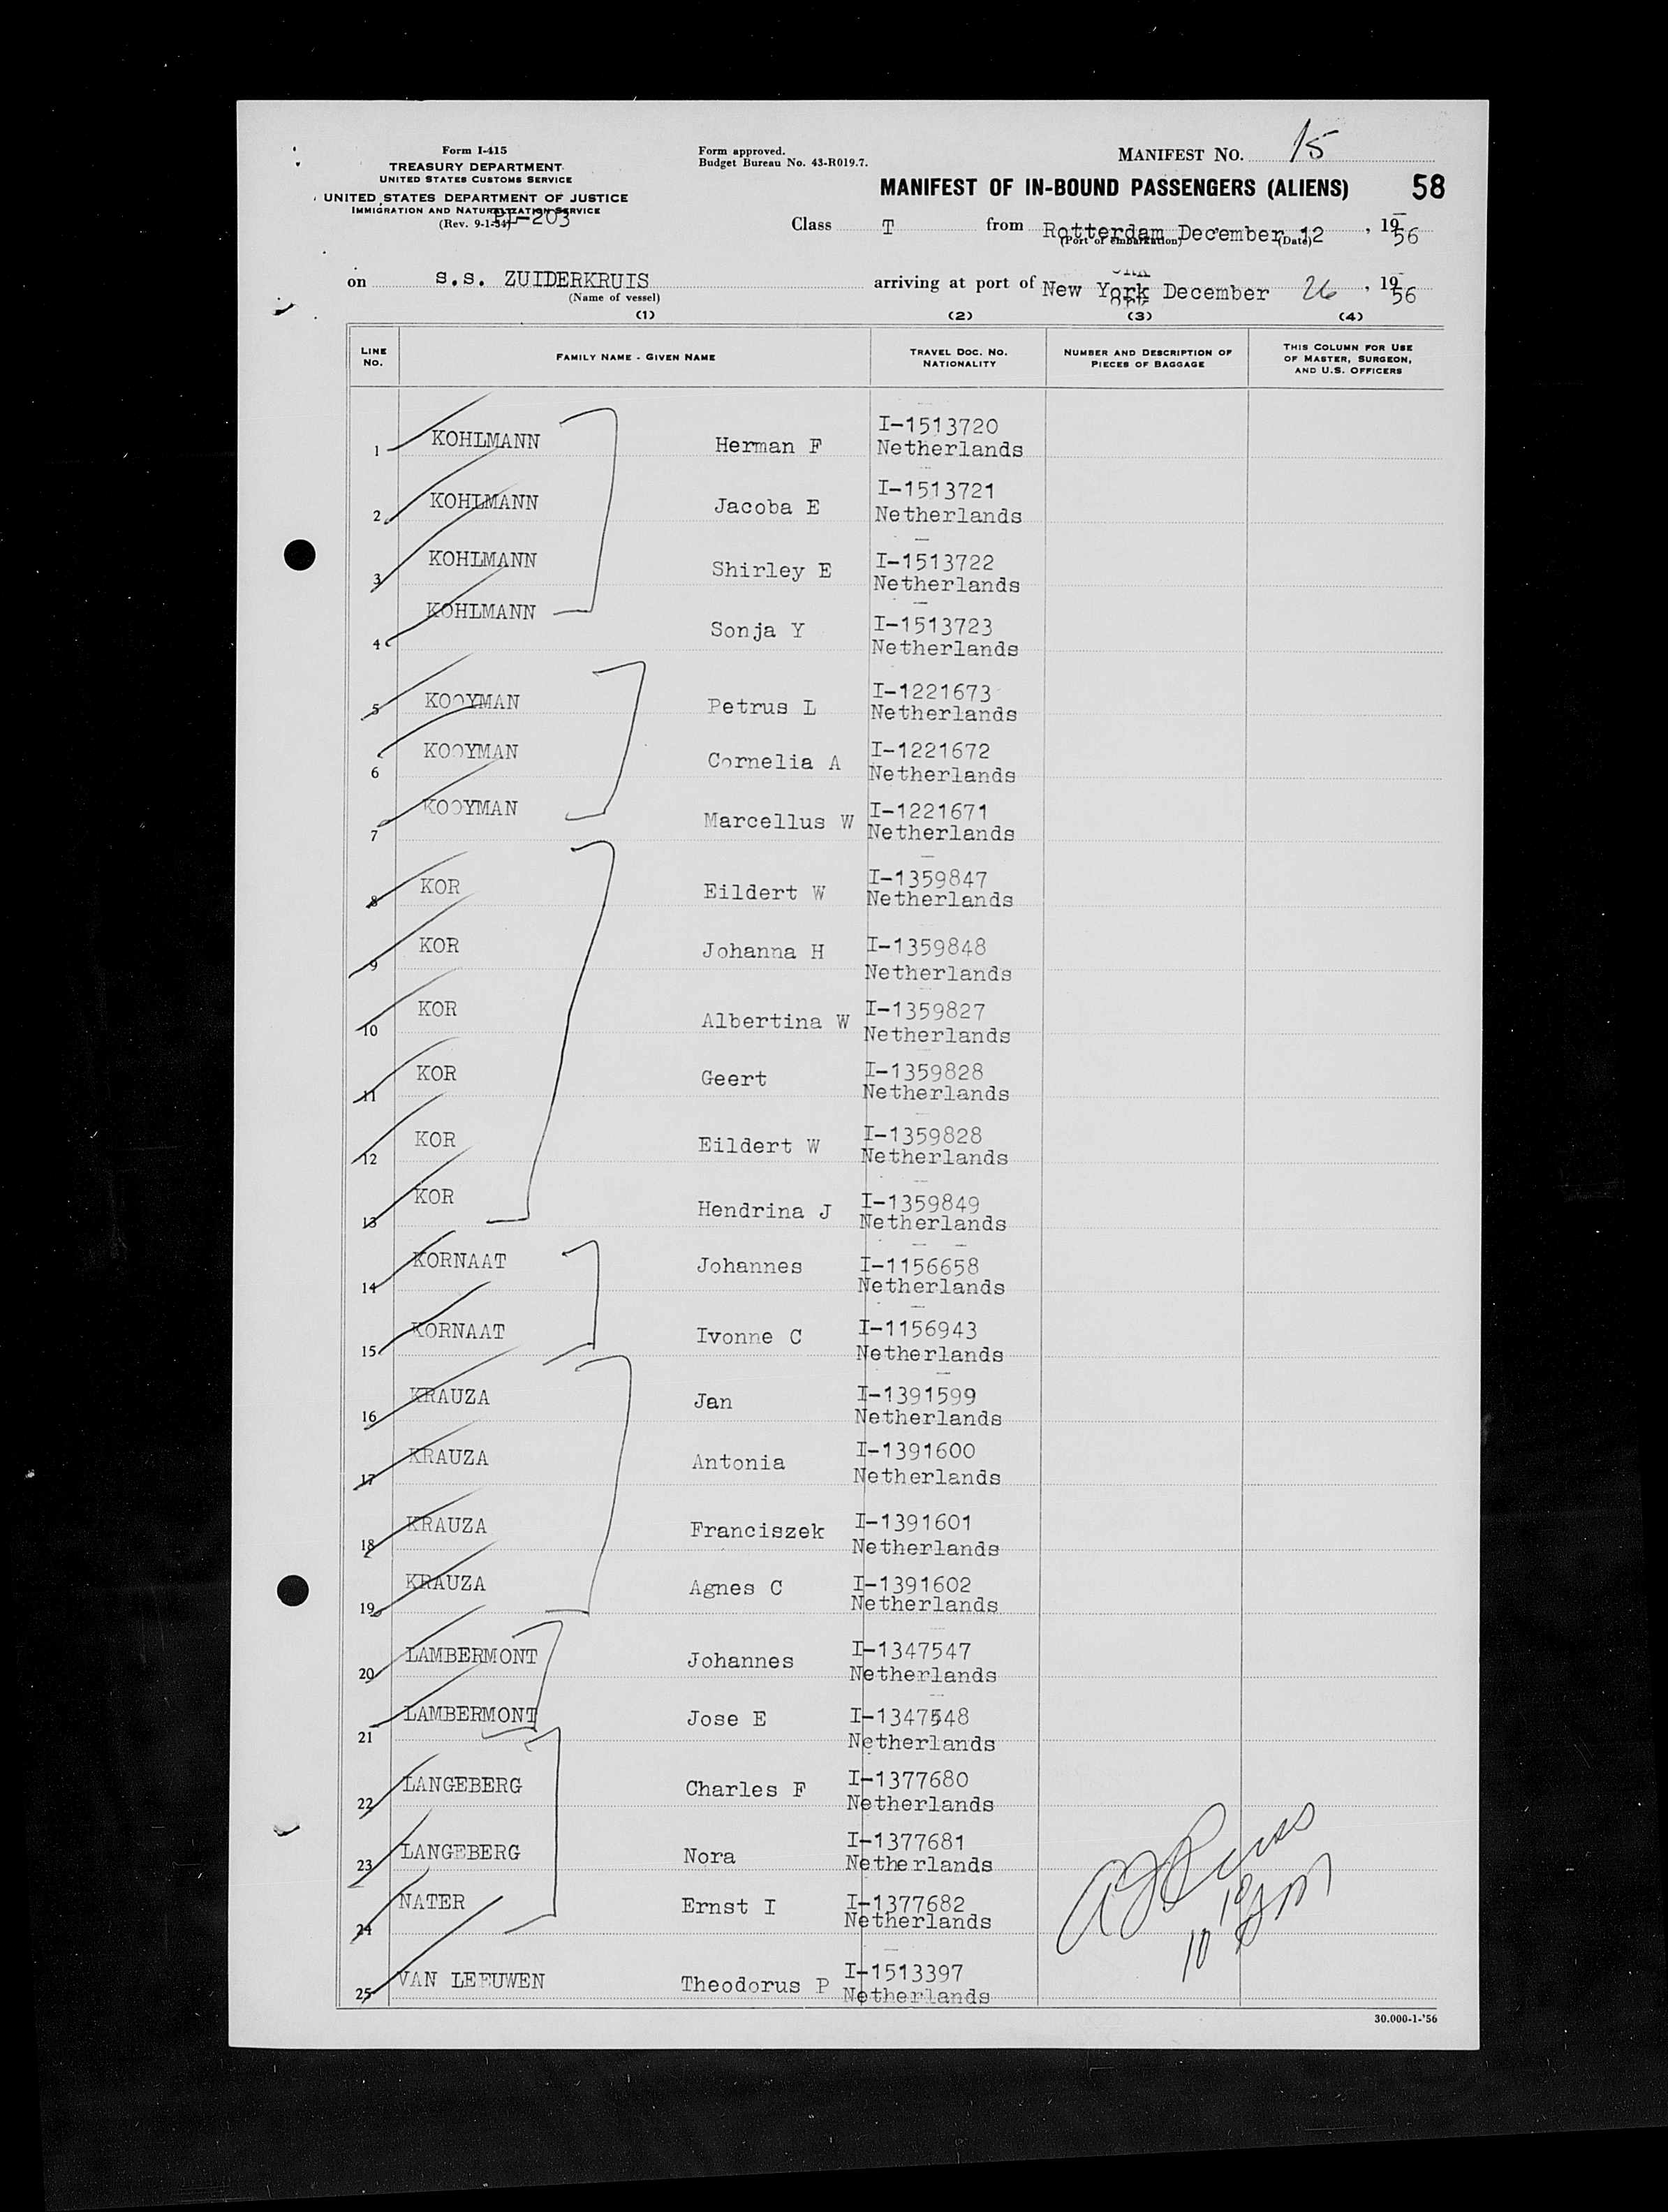 Form I-415
TREASURY DEPARTMENT
UNITED STATES CUSTOMS SERVICE
UNITED STATES DEPARTMENT OF JUSTICE
IMMIGRATION AND NATURALIZATION SERVICE
(Rev. 9-1-54)
PL-203
Form approved.
Budget Bureau No. 43-R019.7.
MANIFEST NO. 15
MANIFEST OF IN-BOUND PASSENGERS (ALIENS) 58
Class T from Rotterdam December 12, 1956
(Port of embarkation) (Date)
on s.s. ZUIDERKRUIS arriving at port of New York December 26, 1956
(Name of vessel)
(1) (2) (3) (4)
LINE NO.
FAMILY NAME - GIVEN NAME
TRAVEL DOC. NO.
NATIONALITY
NUMBER AND DESCRIPTION OF
PIECES OF BAGGAGE
THIS COLUMN FOR USE
OF MASTER, SURGEON,
AND U.S. OFFICERS
1 KOHLMANN Herman F I-1513720
Netherlands
2 KOHLMANN Jacoba E I-1513721
Netherlands
3 KOHLMANN Shirley E I-1513722
Netherlands
4 KOHLMANN Sonja Y I-1513723
Netherlands
5 KOOYMAN Petrus L I-1221673
Netherlands
6 KOOYMAN Cornelia A I-1221672
Netherlands
7 KOOYMAN Marcellus W I-1221671
Netherlands
8 KOR Eildert W I-1359847
Netherlands
9 KOR Johanna H I-1359848
Netherlands
10 KOR Albertina W I-1359827
Netherlands
11 KOR Geert I-1359828
Netherlands
12 KOR Eildert W I-1359828
Netherlands
13 KOR Hendrina J I-1359849
Netherlands
14 KORNAAT Johannes I-1156658
Netherlands
15 KORNAAT Ivonne C I-1156943
Netherlands
16 KRAUZA Jan I-1391599
Netherlands
17 KRAUZA Antonia I-1391600
Netherlands
18 KRAUZA Franciszek I-1391601
Netherlands
19 KRAUZA Agnes C I-1391602
Netherlands
20 LAMBERMONT Johannes I-1347547
Netherlands
21 LAMBERMONT Jose E I-1347548
Netherlands
22 LANGEBERG Charles F I-1377680
Netherlands
23 LANGEBERG Nora I-1377681
Netherlands
24 NATER Ernst I I-1377682
Netherlands
25 VAN LEEUWEN Theodorus P I-1513397
Netherlands
30.000-1-'56